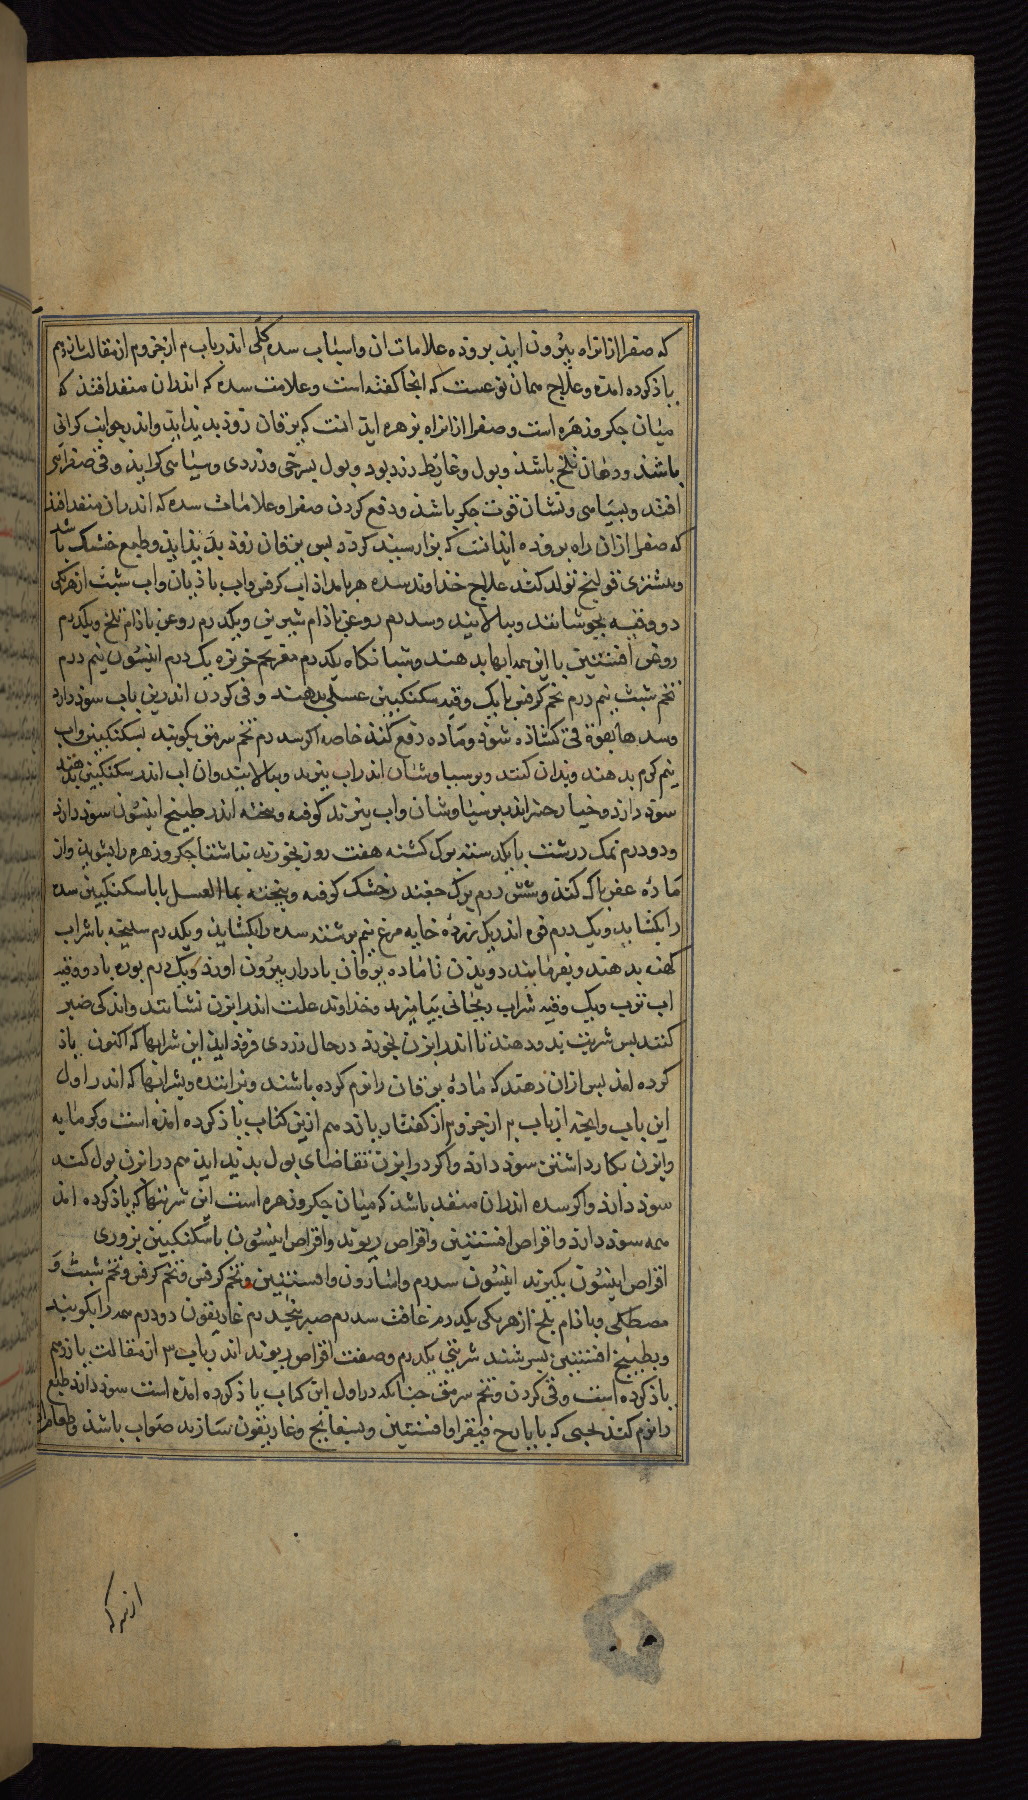 که صفرا ازان راه بیرون اید بروده علامات ان و اسباب سده کلی اندر باب م از جزو م از مقالت یازدهم
یاذ کرده امده و علاج همان نوعست که انجا کفته است و علامت سده که اندران منفد افتذ که
میان جکر و زهره است و صفرا ازان راه بزهره اید انست که یرقان زوذ بدید اید و اندر جوانب کرانی
باشذ و دهان تلخ باشذ و بول و غایط زرد بود و بول بسرخی و زردی و سیاهی کراید و قی صفرا
افتد و بسیاسی و نشان قوت جکر باشذ و دفع کردن صفرا و علامات سده که اندران منفد افتذ
که صفرا ازان راه بروده اید انست که بس یرقان زوذ بدید اید و طبع خشک باشد
و بیشتری قولنج تولد کند علاج خذاوند سده هر بامداد اب کرفس و اب باذیان و اب شبت از هر یکی
دو وقیه بجوشانند و ببالایند و سه درم روغن باذام شیرین و یکدرم روغن باذام تلخ و یکدرم
روغن افسنتین با این همه ابها بدهند و شبانکاه یکدرم مغز تخم خربزه یک درم انیسون نیم درم
تخم شبث نیم درم تخم کرفس با یک وقیه سکنکبین عسلی بدهند و قی کردن اندرین باب سوذ دارد
و سدها بقوة قی کشاذه شوذ و ماده دفع کند خاصه اکر سه درم تخم سرمق بکوبند بسکنکبین و اب
نیم کرم بدهند و بدان کنند و برسیاوشان اندر اب بپزند و ببالایند و ان اب اندر سکنکبین بدهند
سوذ دارد و خیار اندر برسیاوشان و اب بپزند کوفته و بیخته اندر طبیخ انیسون سوذ دارد
و دو درم نمک درشت با یکدسته برک کشنه هفت روز بخورند بناشتا جکر و زهره را بشوید و از
ماده عفن باک کند و شش درم برک جغند رخشک کوفته و بیخته بماء العسل یا با سکنکبین سده
را بکشاید و یک درم فوه اندر یک زرده خایه مرغ نیم برشته سده را بکشاید و یکدرم سلیخه با شراب
کهنه بدهند و بفرمایند دویدن تا ماده یرقان بادرار بیرون اورد و یک درم بوره با دو وقیه
اب ترب و یک وقیه شراب ریحانی بیامیزند و خداوند علت اندر ابزن نشانند و اندکی صبر
کنند بس شربت بدو دهند تا اندر ابزن بخورد درحال زردی فروذ اید این شرابها که اکنون یاذ
کرده امد بس ازان دهند که ماده یرقان را نرم کرده باشند و بزانیده و بشرابها که اندر اول
این باب و انچه از باب م از جزو م از کفتار یازدهم ازین کتاب یاذ کرده امده است و کرمابه
و ابزن بکار داشتن سوذ دارد و اکر در ابزن تقاضای بول بدید اید هم در ابزن بول کند
سوذ دارد و اکر سده اندران منفد باشذ که میان جکر و زهره است این شربتها که یاذ کرده امد
همه سوذ دارد و اقراص افسنتین و اقراص ریوند و اقراص انیسون با سکنکبین بزوری
اقراص انیسون بکیرند انیسون سه درم و اسارون و افسنتین و تخم کرفس و تخم کرفس و تخم شبث و
مصطکی و باذام تلخ از هر یکی یکدرم غافت سه درم صبر بنجدرم غاریقون دو درم همه را بکوبند
و بطبیخ افسنتین بسرشند شربتی یکدرم و صفت اقراص ریوند اندر باب ۳ از مقالت یازدهم
یاذ کرده است و قی کردن و تخم سرمق جنانکه در اول این کتاب یاذ کرده امده است سوذ دارد طبع
را نرم کند بحبی که با یارج فیقرا و افسنتین و بسفایج و غاریقون سازند صواب باشذ و طعام
از ترکه